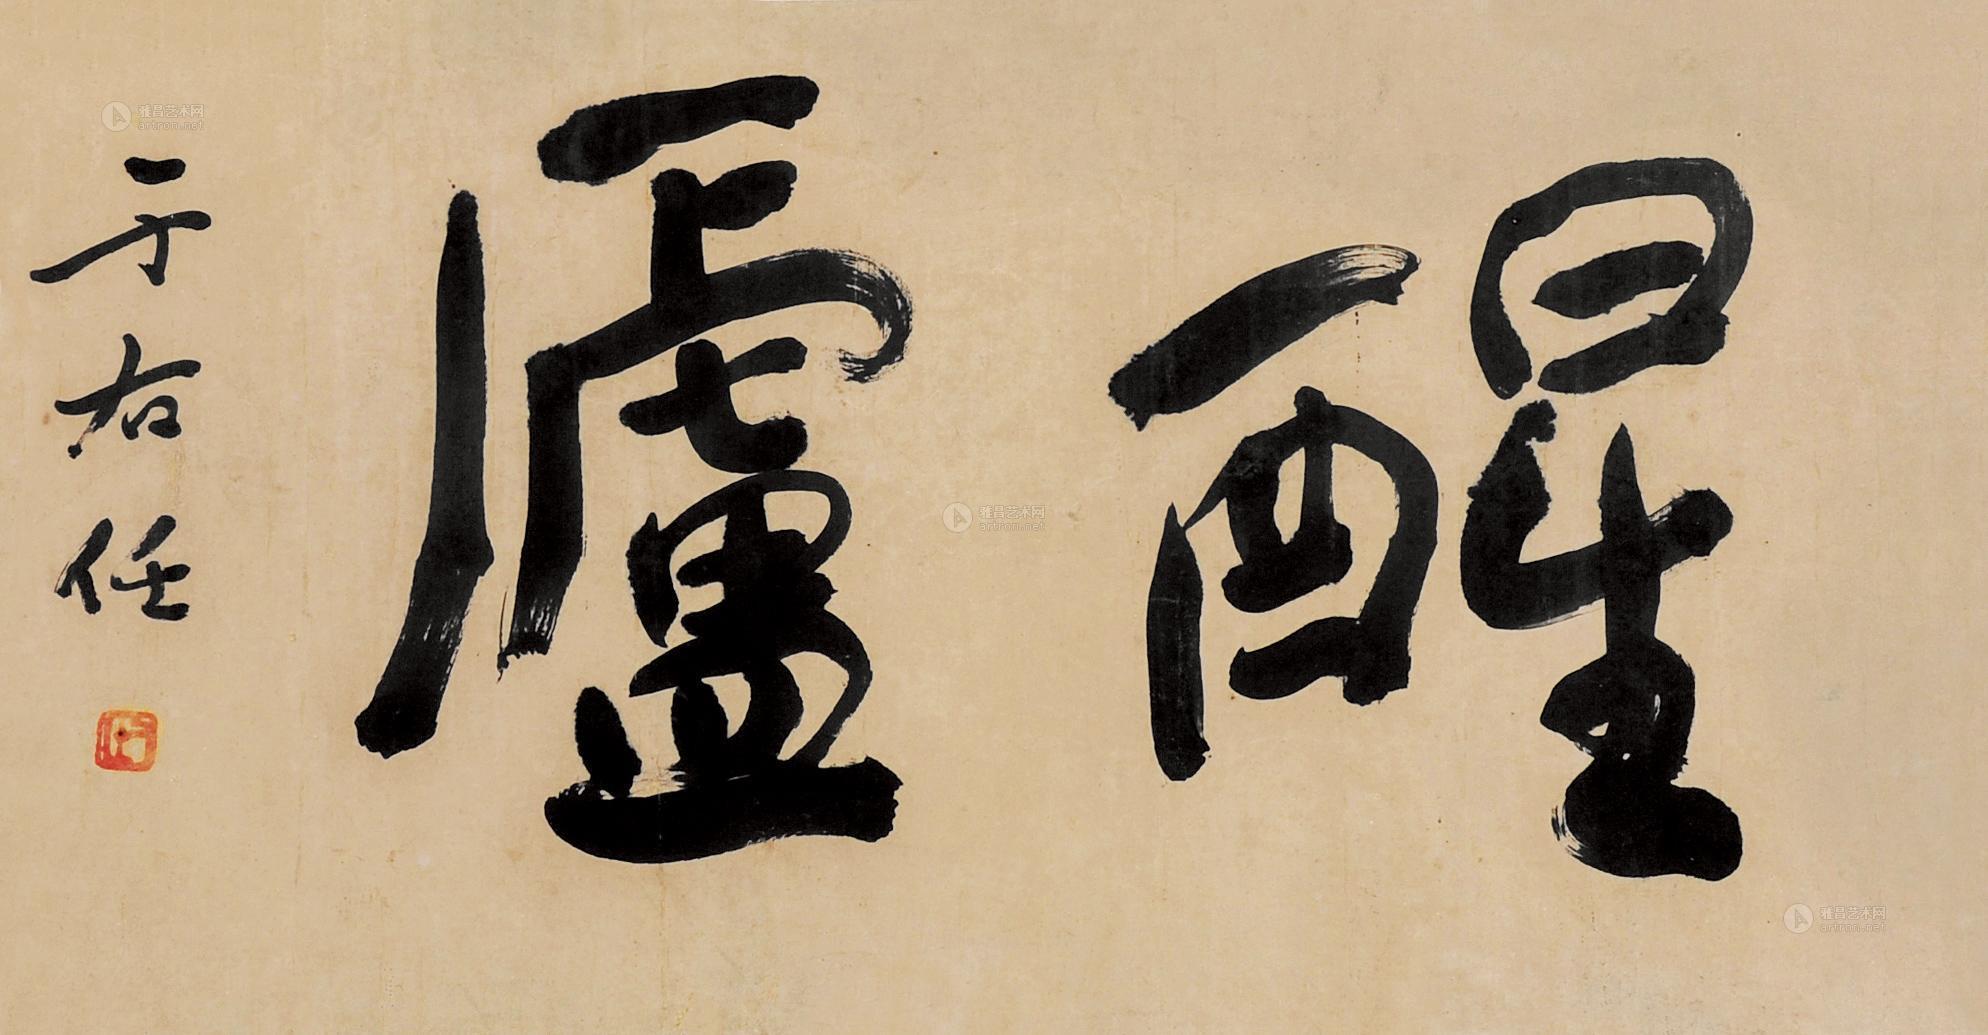 醒廬
于右任
雅昌艺术网
artron.net
雅昌艺术网
artron.net
雅昌艺术网
artron.net